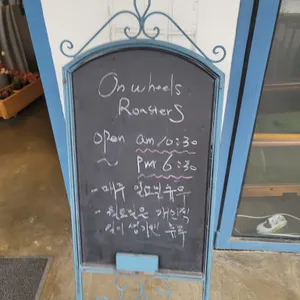 On wheels
Roasters
open am 10:30
~ pm 6:30
- 매주 일요일 휴무
- 월요일은 개인적
일이 생기면 휴무